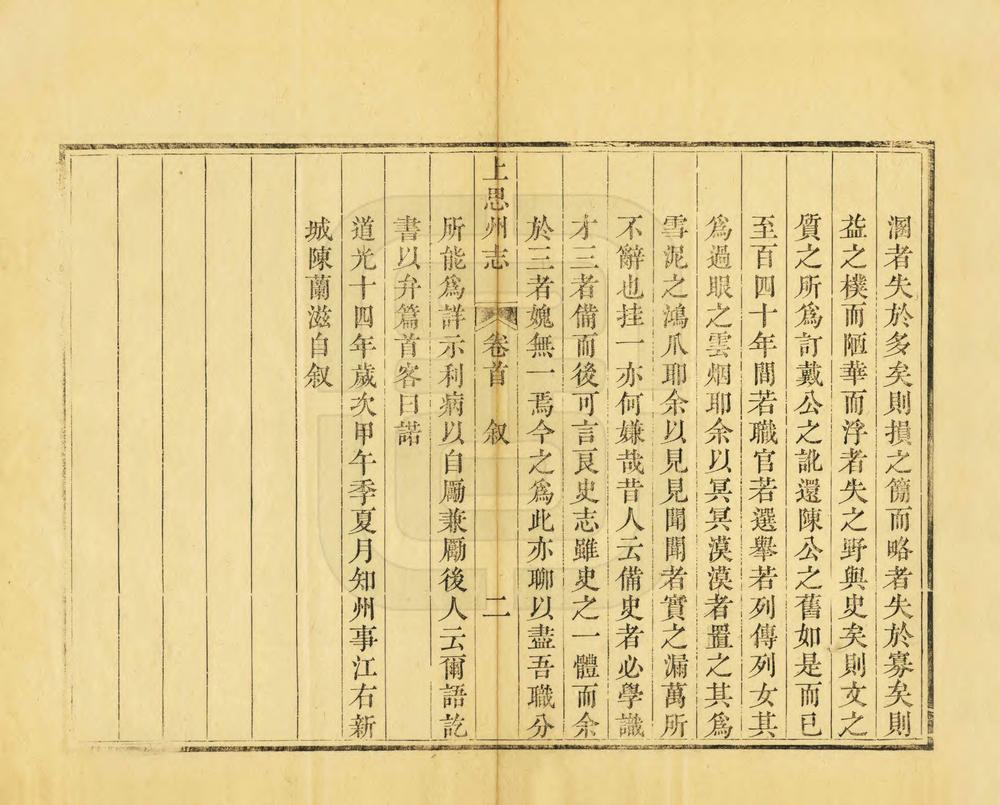 溷者失於多矣則損之簡而略者失於寡矣則
益之樸而陋華而浮者失之野與史矣則文之
質之所為訂戴公之訛還陳公之舊如是而已
至百四十年間若職官若選舉若列傳列女其
為過眼之雲烟耶余以冥冥漠漠者置之其為
雪泥之鴻爪耶余以見見聞聞者實之漏萬所
不辭也挂一亦何嫌哉昔人云備史者必學識
才三者備而後可言良史志雖史之一體而余
於三者媿無一焉今之為此亦聊以盡吾職分
上思州志 卷首 叙 二
所能為詳示利病以自勵兼勵後人云爾語訖
書以弁篇首客曰諾
道光十四年歲次甲午季夏月知州事江右新
城陳蘭滋自叙